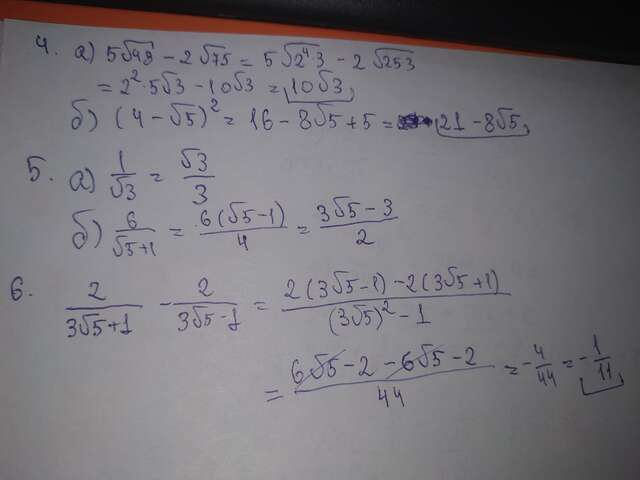 4. а) 5√48 − 2√75 = 5√2⁴·3 − 2√253
= 2²·5√3 − 10√3 = 10√3,
б) (4 − √5)² = 16 − 8√5 + 5 = 21 − 8√5,
5. а) 1/√3 = √3/3
б) 6/√5+1 = 6(√5−1)/4 = 3√5−3/2
6. 2/3√5+1 − 2/3√5−1 = 2(3√5−1)−2(3√5+1)/(3√5)²−1
= 6√5−2−6√5−2/44 = −4/44 = −1/11